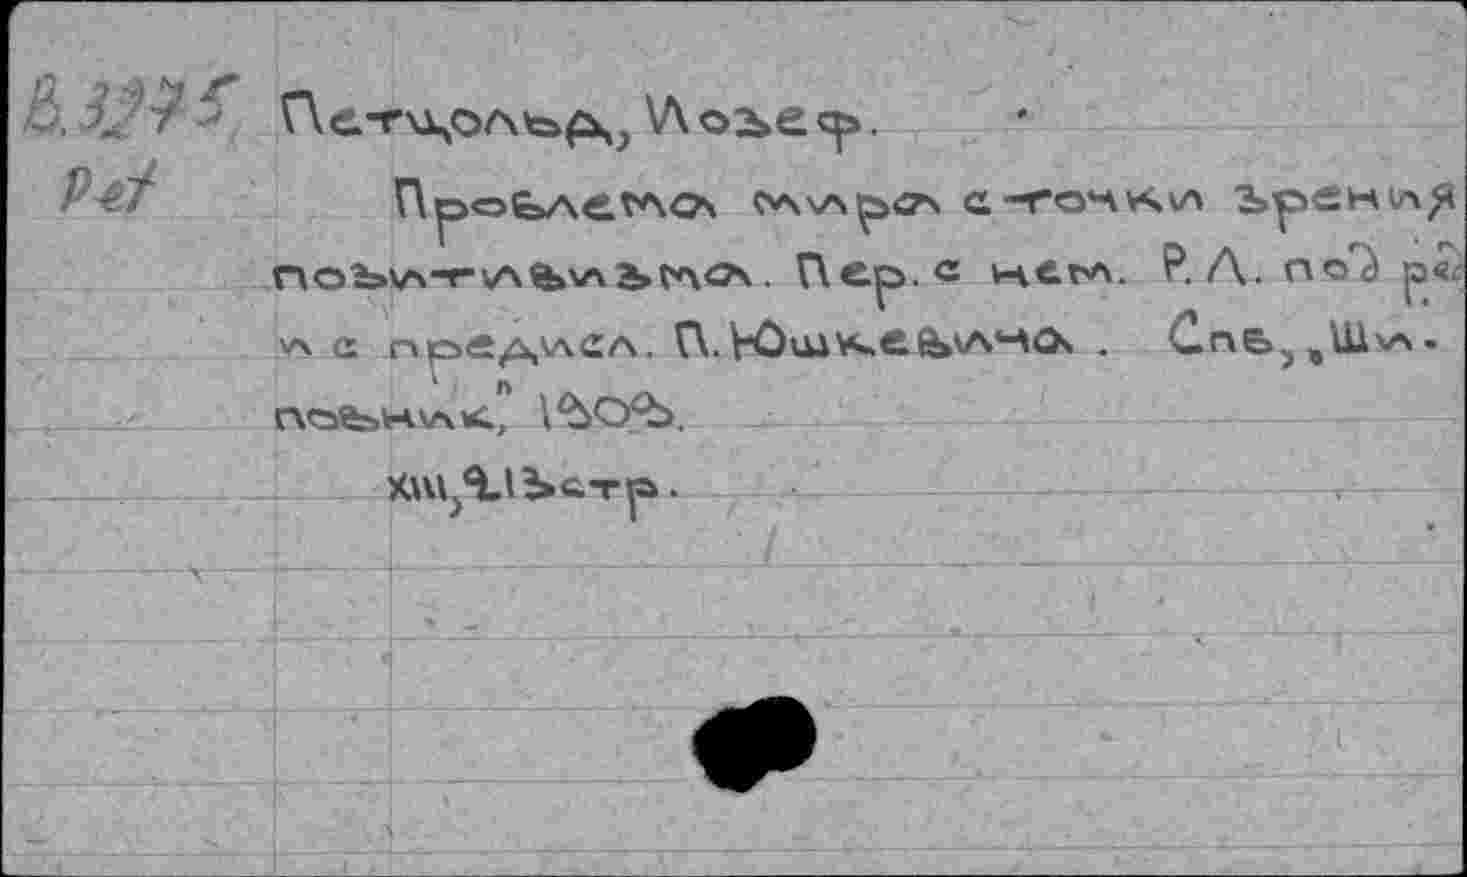 В.3275 Петцольд, Иозеф.
Pet Проблема мира с точки зрения
позитивизма. Пер. с нем. Р. Л. под ре
и с предисл. П. Юшкевича. Спб, „Ши-
повник", 1909.
XIII, 213 стр.